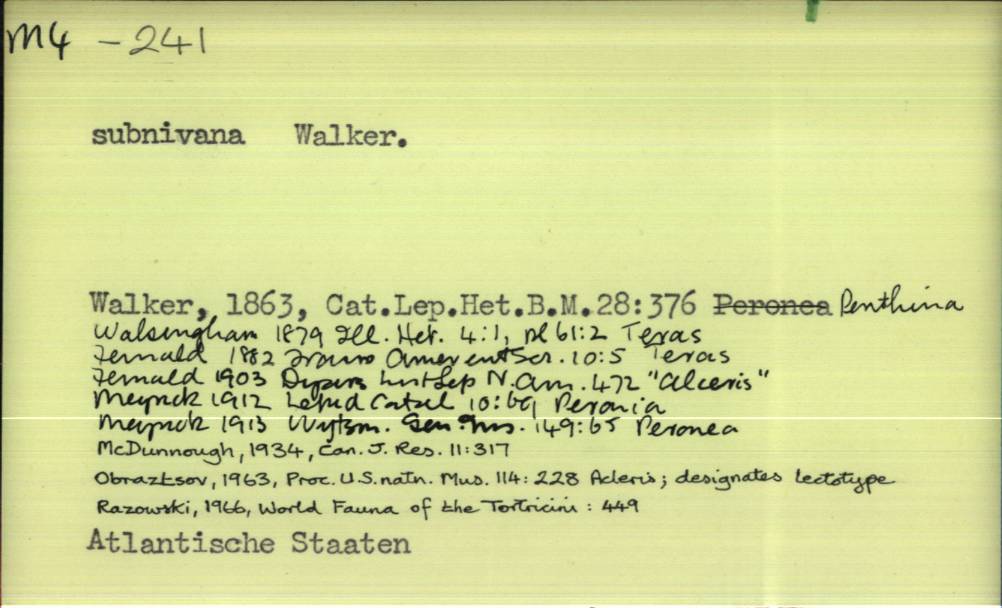 M4 - 241
subnivana Walker.
Walker, 1863, Cat.Lep.Het.B.M.28:376 Peronea Penthina
Walsingham 1879 Ill. Het. 4:1, pl 61:2 Teras
Fernald 1882 Trans Amer ent Soc. 10:5 Teras
Fernald 1903 N. Am. 472 "Alceris"
Meyrick 1912 Lepid Catal 10:69 Peronia
Meyrick 1913 Wytsm. Gen. Ins. 149:65 Peronea
McDunnough, 1934, Can. J. Res. 11:317
Obraztsov, 1963, Proc. U.S. natn. Mus. 114: 228 Acleris; designates lectotype
Razowski, 1966, World Fauna of the Tortricini : 449
Atlantische Staaten